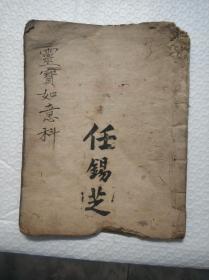 靈寶如意科
任錫芝